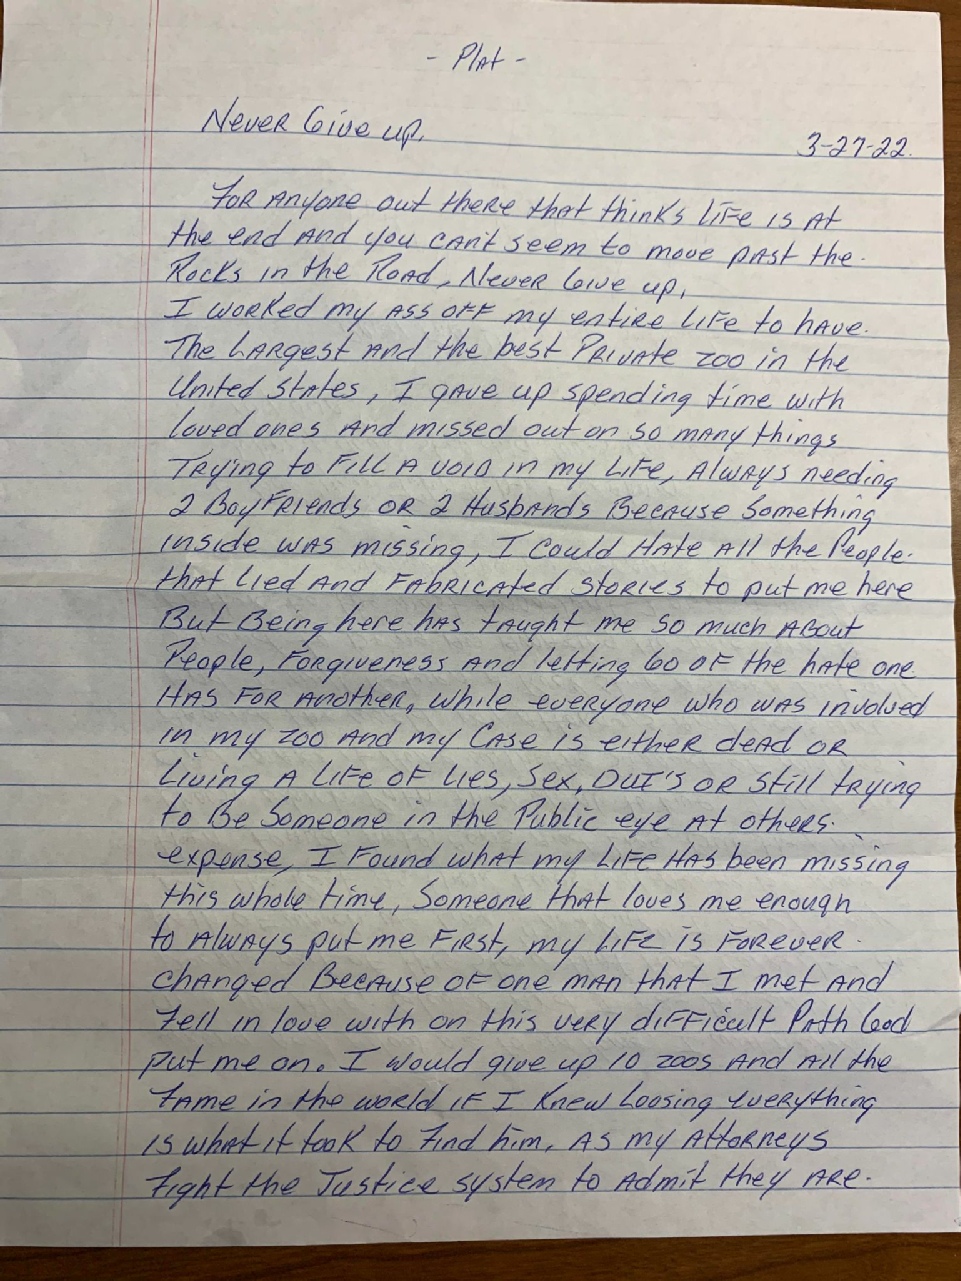 - Plat -
Never Give up.
3-27-22.
For anyone out there that thinks life is at
the end and you can't seem to move past the.
Rocks in the Road, Never Give up,
I worked my ass off my entire life to have.
The Largest and the best Private zoo in the
United States, I gave up spending time with
loved ones and missed out on so many things
Trying to fill a void in my life, Always needing
2 Boyfriends or 2 Husbands Because something
inside was missing, I could Hate all the People.
that lied and fabricated stories to put me here
But Being here has taught me so much About
People, Forgiveness and letting Go of the hate one
Has for another, while everyone who was involved
in my zoo and my Case is either dead or
Living a life of lies, Sex, DUI's or Still trying
to Be Someone in the Public eye at others.
expense, I Found what my life Has been missing
this whole time, Someone that loves me enough
to Always put me First, my life is Forever.
changed Because of one man that I met and
Fell in love with on this very difficult Path God
put me on. I would give up 10 zoos and all the
Fame in the world if I Knew Loosing everything
is what it took to Find him, As my Attorneys
Fight the Justice system to Admit they Are.